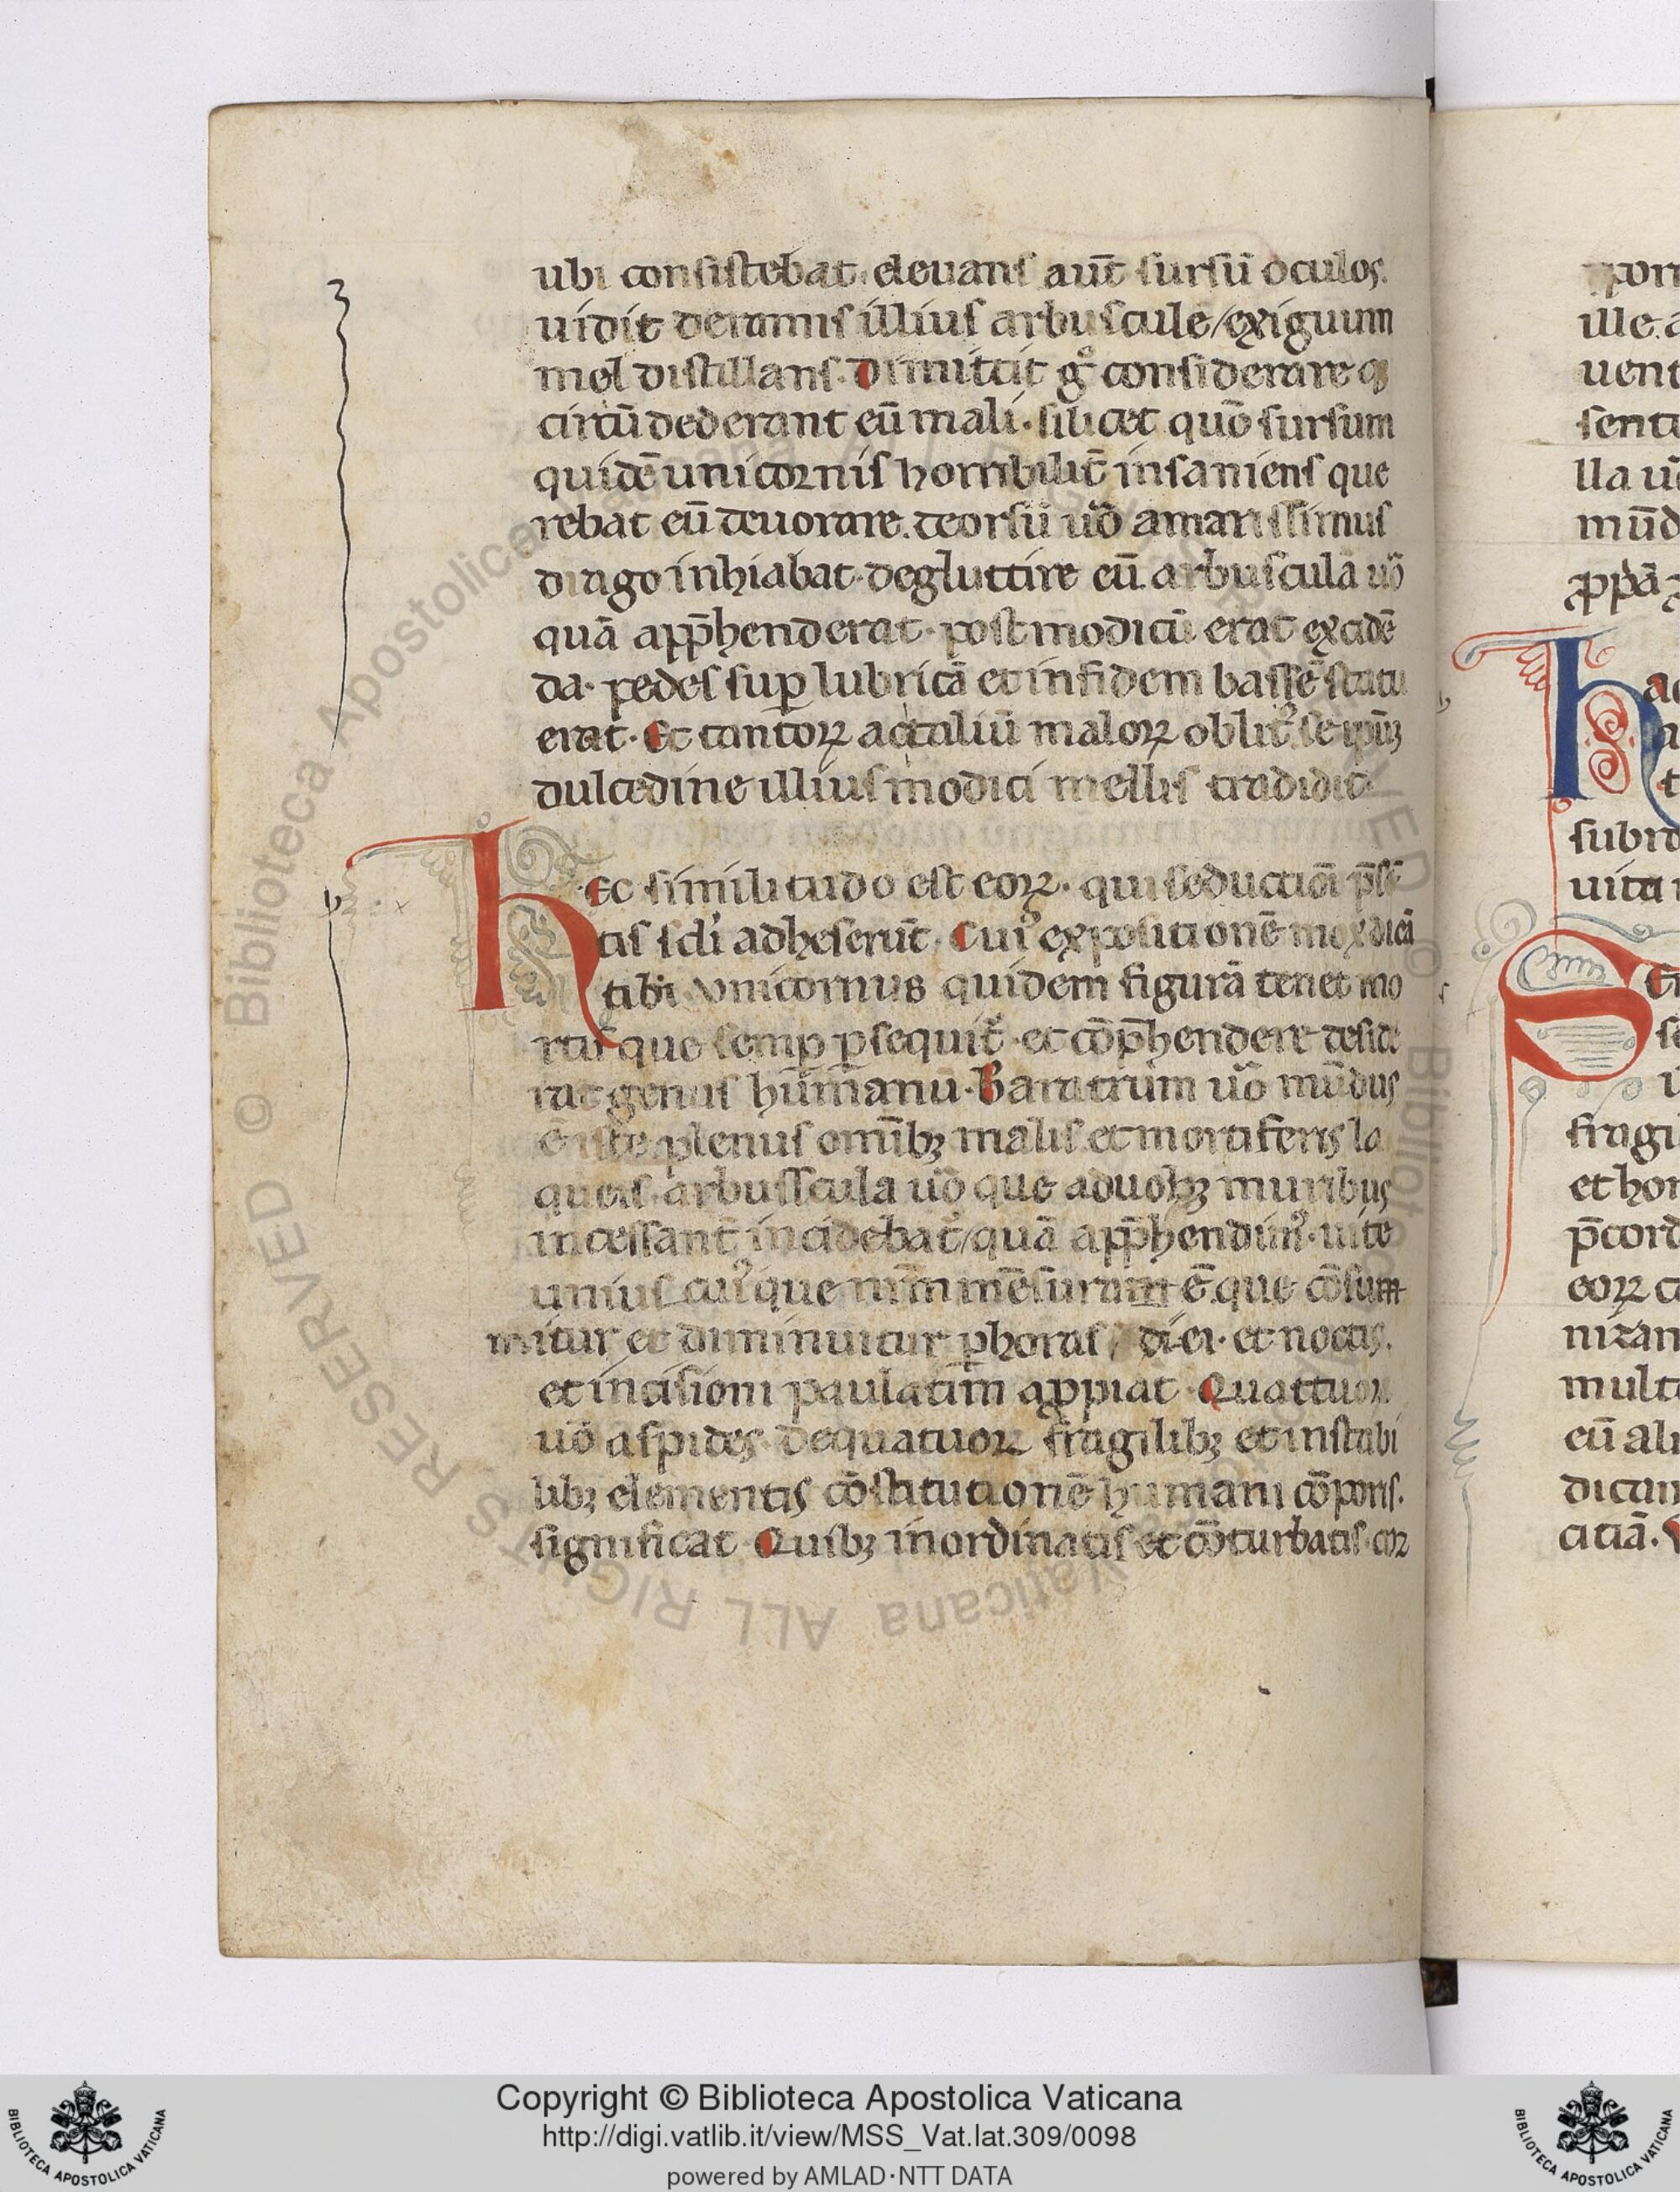 ubi consistebat. eleuans aut̄ sursū oculos.
uidit de ramis illius arbuscule / exiguum
mel distillans. Dimittit gͦ considerare q̄
circūdederant eū mali. silicet quō sursum
quidē unicornis horribilit̄ insaniens que
rebat eū deuorare. deorsū uō amarissimus
drago inhiabat degluttire eū. arbusculā uō
quā app̄henderat. post modicū erat excidē
da. pedes suꝑ lubricā et infidem bassē statu
erat. Et tantoꝝ ac taliū maloꝝ oblit᷒ se ip̄ūꝫ
dulcedine illius modici mellis tradidit.
hEc similitudo est eoꝝ. qui seductiōi p̄sē
tis sc̄li adheserūt. Cui᷒ expositionē mox dicā
tibi. Vnicornus quidem figurā tenet mo
rtis que semꝑ ꝑsequit᷑. et cōp̄hendere deside
rat genus hūmanū. Baratrum uō mūdus
ē iste plenus omībꝫ malis et mortiferis la
queis. arbusscula uō que a duobꝫ muribus
incessant̄ incidebat᷑ / quā app̄hendim᷒. uite
unius cui᷒que nr̄m mēsuram ē. que cōsum
mitur et diminuitur ꝑ horas / diei. et noctis.
et incisioni paulatim appiat. Quattuor
uō aspides. de quatuor fragilibꝫ et instabi
libꝫ elementis cōstitutionē humani cōporis.
significat. Quibꝫ inordinatis et cōturbatis. cor
ille. a
uent
senti
mūd
subrd
uita
fragi
et hor
p̄cord
eoꝝ
nitan
mult
eū ali
dictan
citiā.
Copyright © Biblioteca Apostolica Vaticana
http://digi.vatlib.it/view/MSS_Vat.lat.309/0098
powered by AMLAD·NTT DATA
BIBLIOTECA APOSTOLICA VATICANA
BIBLIOTECA APOSTOLICA VATICANA
© Biblioteca Apostolica Vaticana ALL RIGHTS RESERVED